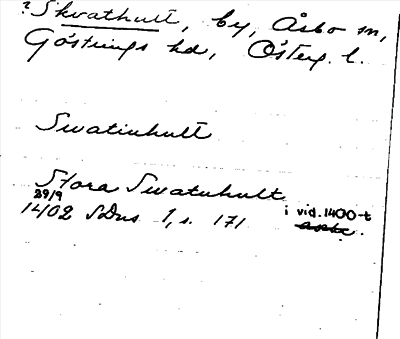 ? Skvathult, by, Åsbo sn,
Göstrings hd, Österg. l.
Swatinhult
Stora Swatuhult
29/9
1402 SDns 1, s. 171 i vid. 1400-t